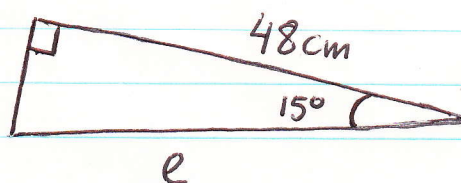 48cm
15°
e